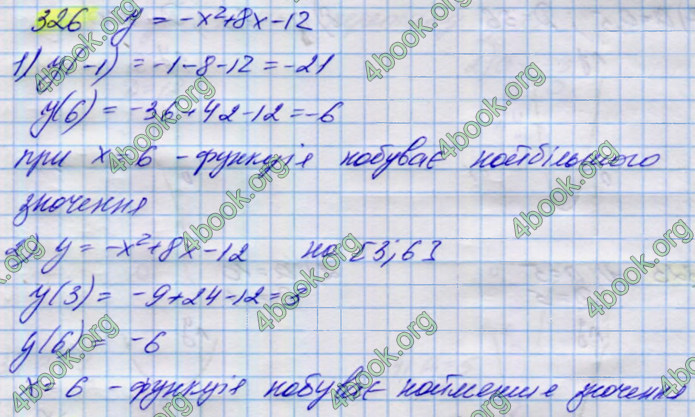 326 y = -x²+8x-12
1) y(-1) = -1-8-12 = -21
y(6) = -36+42-12 = -6
при x=6 - функція набуває найбільшого
значення
2) y = -x²+8x-12 на [3;6]
y(3) = -9+24-12=3
y(6) = -6
x=6 - функція набуває найменше значення
4book.org
4book.org
4book.org
4book.org
4book.org
4book.org
4book.org
4book.org